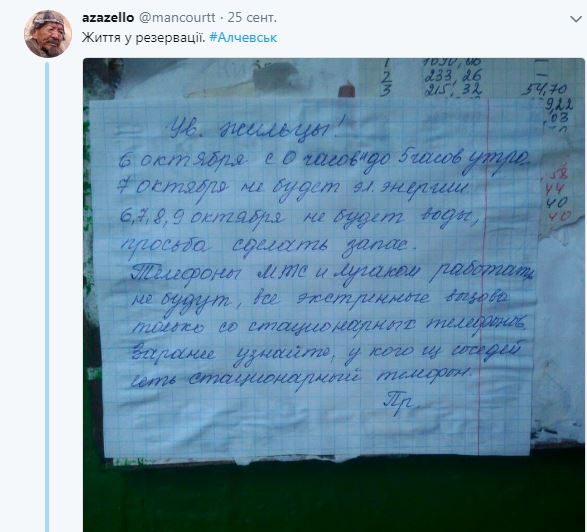 azazello @mancourtt · 25 сент.
Життя у резервації. #Алчевськ
1 1090,00 —
2 233,26 —
3 215,32 54,70
9,22
,03
,58
44
40
40
Ув. жильцы!
6 октября с 0 часов до 5 часов утра
7 октября не будет эл. энергии
6,7,8,9 октября не будет воды,
просьба сделать запас.
Телефоны МТС и Лугаком работать
не будут, все экстренные вызова
только со стационарных телефонов.
Заранее узнайте, у кого из соседей
есть стационарный телефон.
Пр.